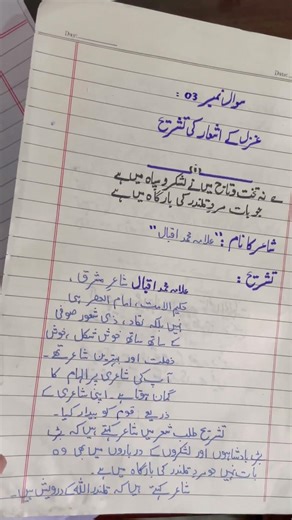 Date:
Date:
سوال نمبر 03 :
غزل کے اشعار کی تشریح
نہ تخت وتاج میں نے لشکر و سپاہ میں ہے
جو بات مردِ قلندر کی بارگاہ میں ہے
شاعر کا نام : "علامہ محمد اقبال"
تشریح :
علامہ محمد اقبال شاعرِ مشرق ،
حکیم الامت، امام العصر ہی
نہیں بلکہ نقاد، ذی شعور صوفی
کے ساتھ ساتھ خوش شکل ، خوش
خصلت اور بہترین شاعر تھے۔
آپ کی شاعری پر الہام کا
گماں ہوتا ہے۔ اپنی شاعری کے
ذریعے قوم کو بیدار کیا۔
تشریح طلب شعر میں شاعر کہتے ہیں کہ بڑے
بڑے بادشاہوں اور لشکروں کے درباروں میں بھی وہ
بات نہیں جو مردِ قلندر کی بارگاہ میں ہے۔
شاعر کہتے ہیں کہ قلندر اللہ کے درویش ہیں۔